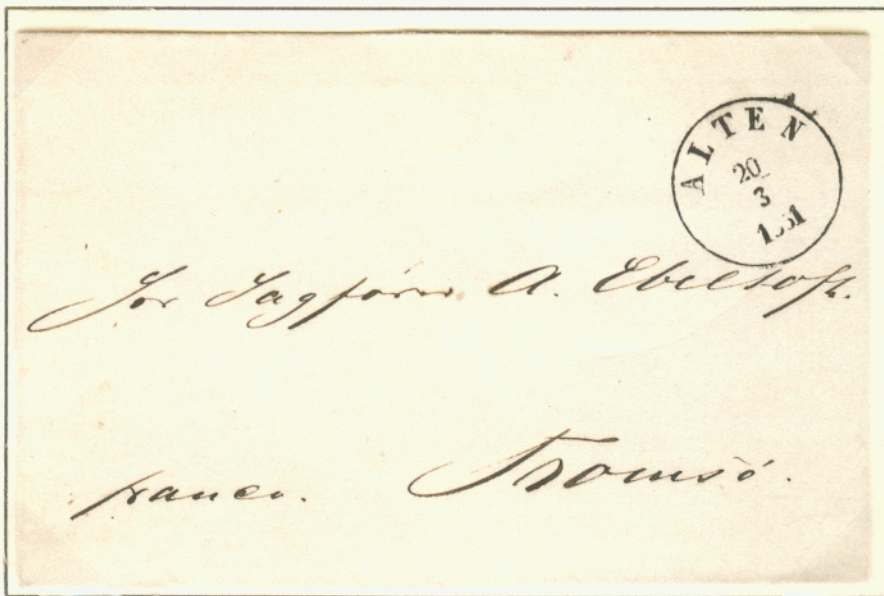 ALTEN
20
3
Hr Sagfører A. Ebeltoft.
franco. Tromsö.